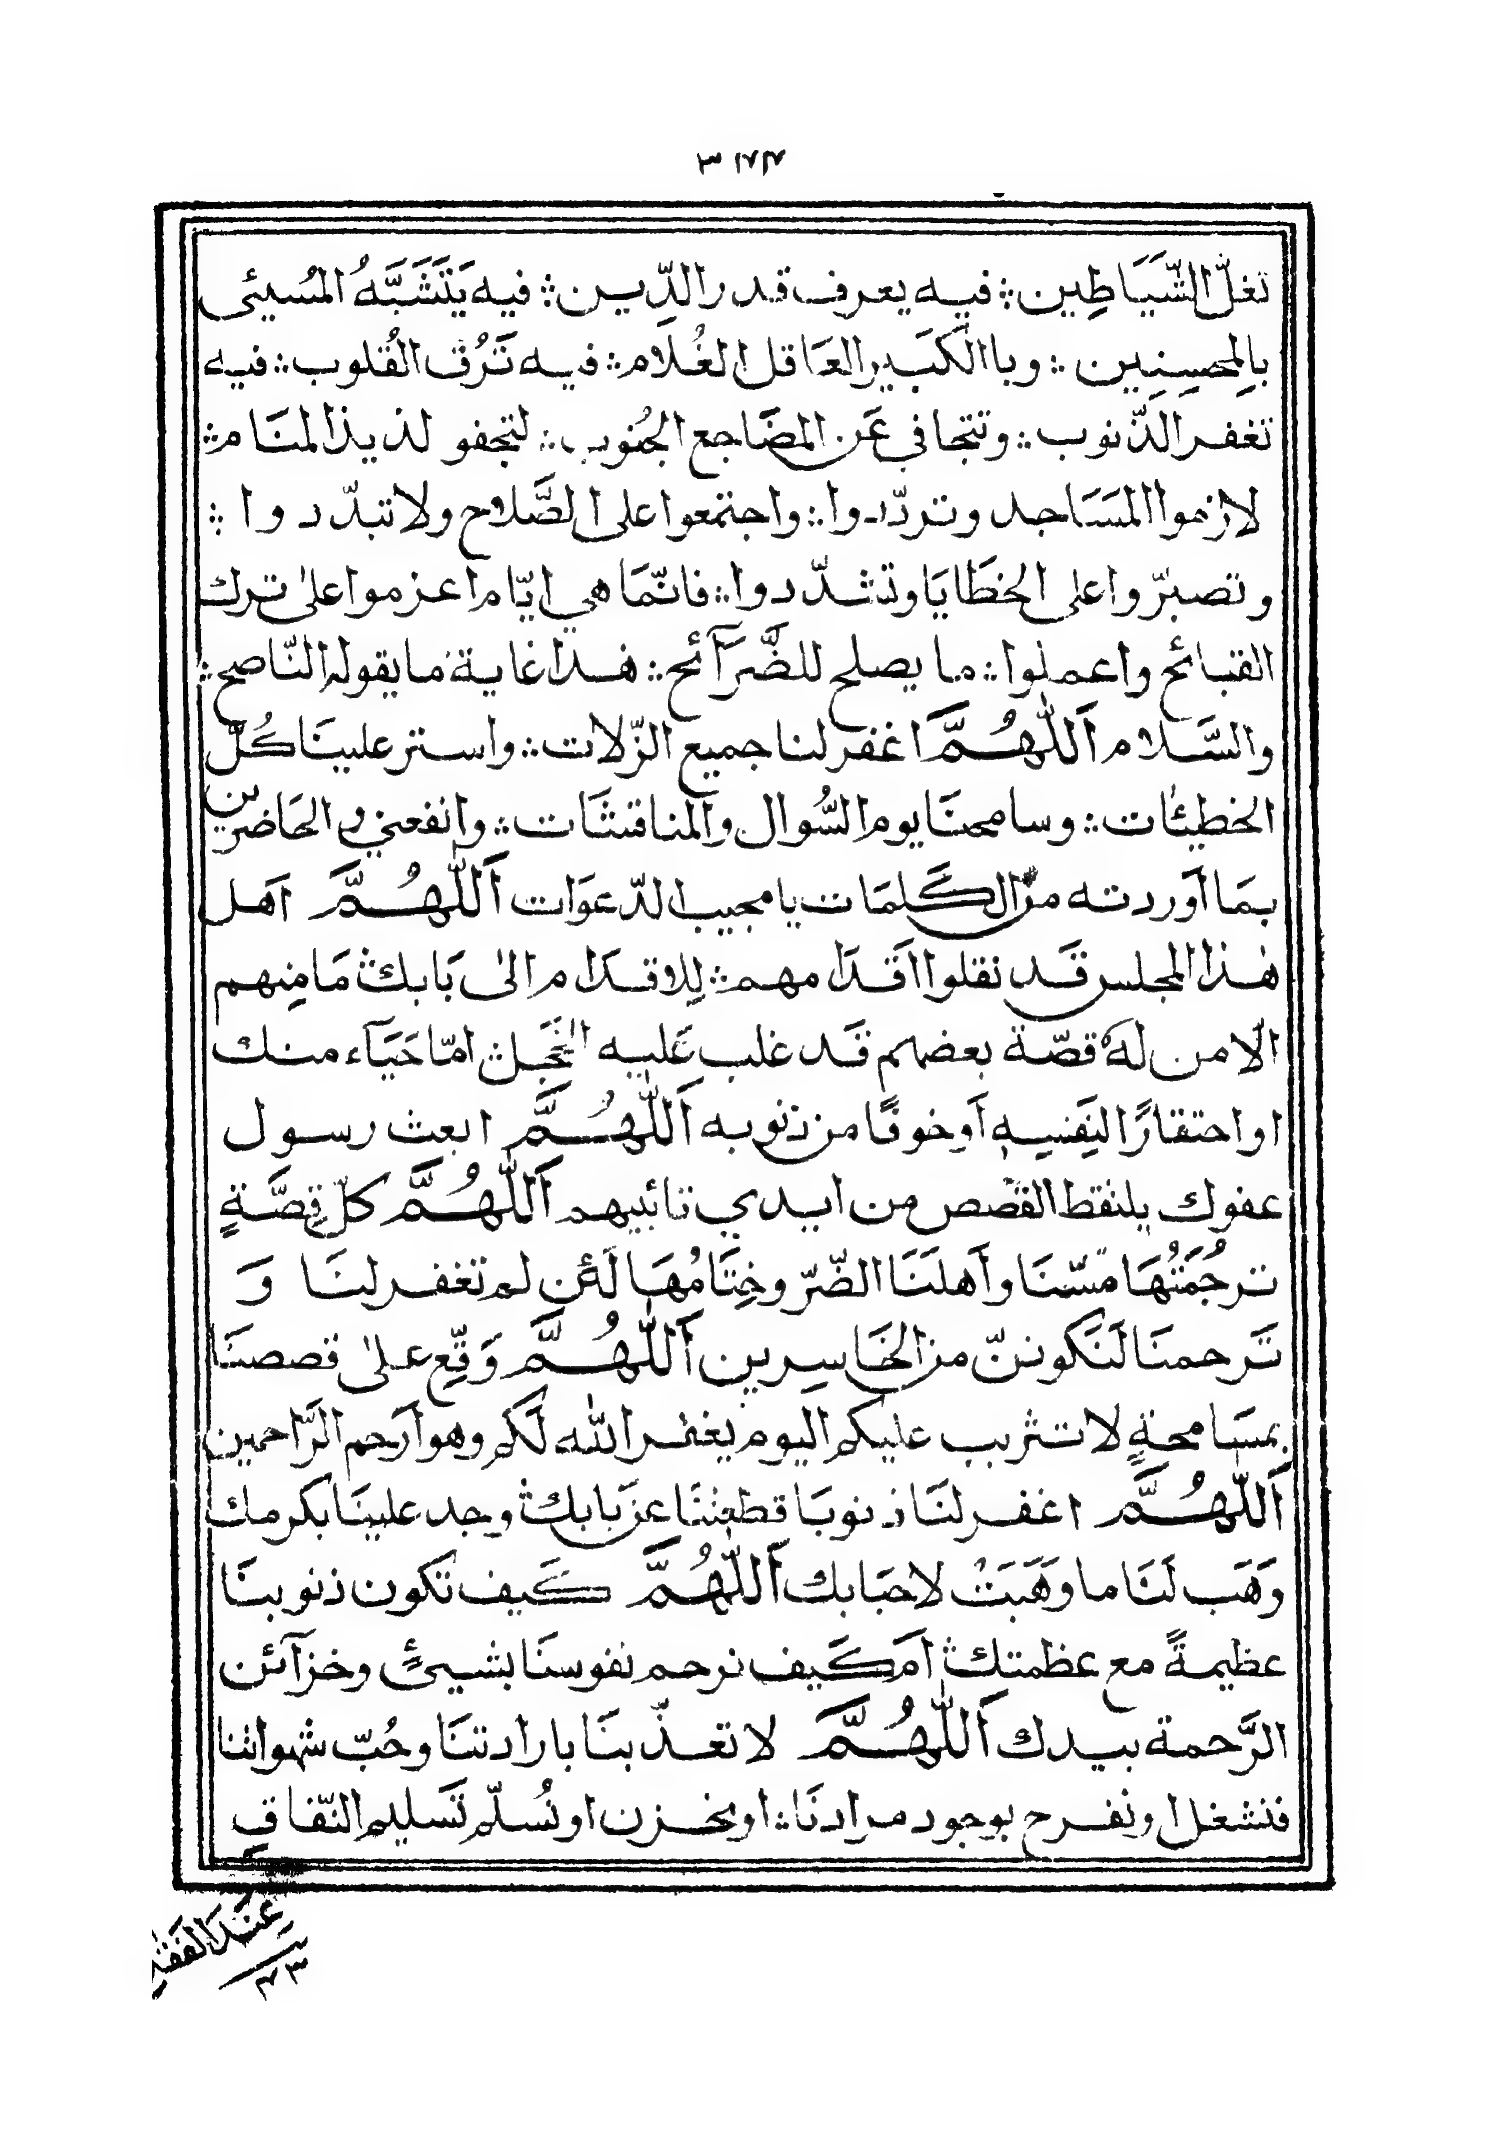 تغلّ الشَّيَاطِين ؞ فيه يعرف قدر الدِّين ؞ فيه يَتَشَبَّهُ المُسيئى
بِالمحسِنِين ؞ وبا الكَبَير العَاقل الغُلَام ؞ فيه تَرُقّ القُلوب ؞ فيه
تغفر الذّنوب ؞ وتتجافى عَن المضَاجع الجُنوب ؞ لتجفو لذيذ المنَام ؞
لازموا المسَاجد وتردّدوا ؞ واجتمعوا على الصَّلاح ولا تبدّدوا ؞
وتصبّروا على الخطَايَا وتشدّدوا ؞ فانّمَا هي ايّام اعزموا على ترك
القبائح واعملوا ؞ ما يصلح للضَّرَآئح ؞ هذا غاية ما يقوله النّاصح ؞
والسَّلام اَللّٰهُمَّ اغفر لنا جميع الزّلات ؞ واستر علينَا كُلّ
الخطيئَات ؞ وسامحنَا يوم السُّوال والمناقشَات ؞ وانفعنى والحَاضرين
بمَا اَوردته من الكَلمَات يا مجيب الدّعوَات اَللّٰهُمَّ اَهل
هٰذا المجلس قَد نقلوا اقَدَامهم ؞ لِلاقدَام الىٰ بَابك مَا مِنهم
الّا من لهٗ قصّة بعضهم قَد غلب عَليه الخَجَل امّا حَيَاء منك
او احتقارًا لنَفسِه اَو خوفًا من ذنوبه اَللّٰهُمَّ ابعث رسول
عفوك يلتقط القصَص من ايدي تائبيهم اَللّٰهُمَّ كلّ قِصَّةٍ
ترجُمَتُهَا مسّنَا واَهلَنَا الضّرّ وخِتَامُهَا لَئن لم تغفر لنَا وَ
تَرحمنَا لَنَكوننّ من الخَاسِرين اَللّٰهُمَّ وَقِّع علىٰ قصصنَا
بمسَامحةٍ لا تثريب عليكم اليوم يغفر الله لَكم وهو اَرحم الرَّاحمين
اَللّٰهُمَّ اغفر لنَا ذنوبَا قطعتنَا عن بَابك وجد علينَا بكرمك
وَهَب لَنَا ما وَهَبَتْ لاحبَابك اَللّٰهُمَّ كَيف تكون ذنوبنَا
عظيمةً مع عظمتك اَم كَيف نرحم نفوسنَا بشيئٍ وخزآئن
الرَّحمة بيدك اَللّٰهُمَّ لا تعذّبنَا بارادتنَا وحُبّ شهواتنا
فنشغل او نفرح بوجود مرادنَا ؞ او نحزن او نُسلّم تَسليم النّفاق
عِندَ الفَقْدِ